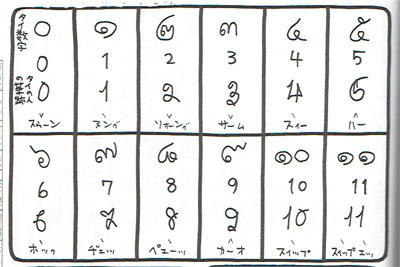 タイ数字
๐ ๑ ๒ ๓ ๔ ๕
0 1 2 3 4 5
タイの人の筆跡
0 1 2 3 4 5
ヌング ソォーング サーム スィー ハー
๖ ๗ ๘ ๙ ๑๐ ๑๑
6 7 8 9 10 11
6 7 8 9 10 11
ホック ヂェッ ペェーッ カーオ スィップ スィップエッ